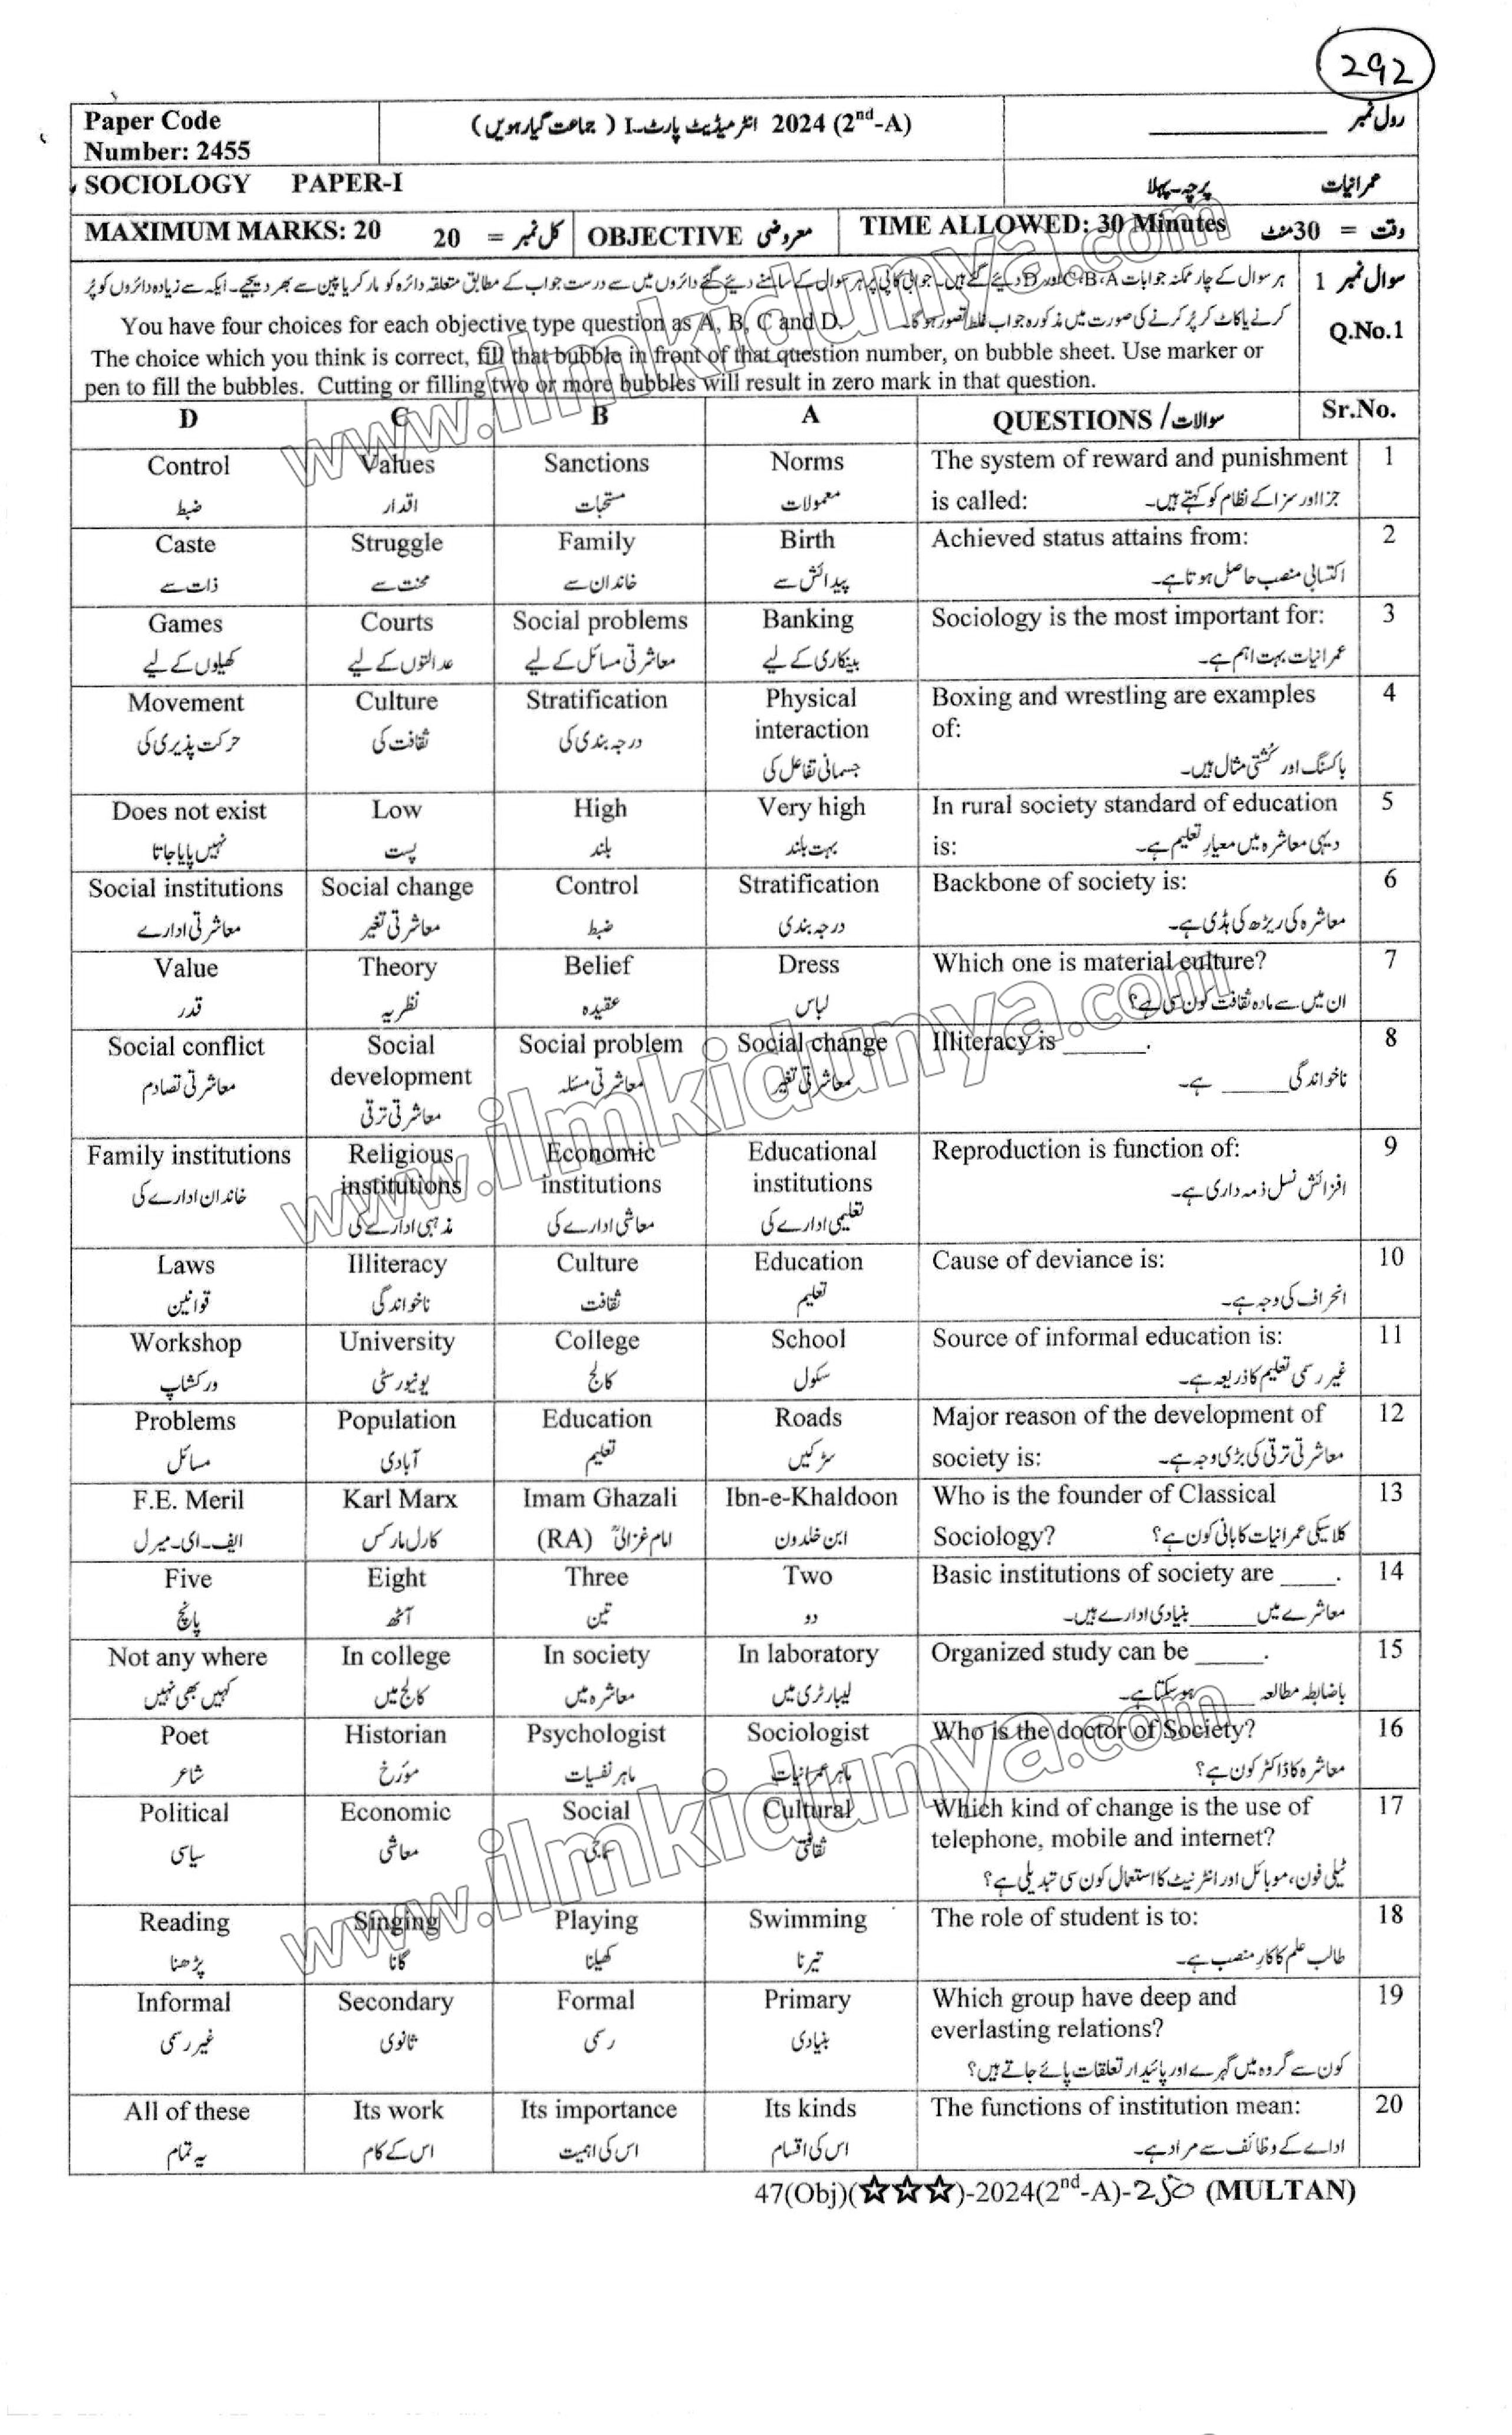 292
Paper Code
Number: 2455
2024 (2nd-A) انٹرمیڈیٹ پارٹ-I (جماعت گیارہویں)
رول نمبر ____________
SOCIOLOGY PAPER-I
پرچہ-پہلا عمرانیات
MAXIMUM MARKS: 20
کل نمبر = 20
OBJECTIVE معروضی
TIME ALLOWED: 30 Minutes
وقت = 30 منٹ
سوال نمبر 1
Q.No.1
ہر سوال کے چار ممکنہ جوابات A، B، C اور D دیئے گئے ہیں۔ جوابی کاپی پر ہر سوال کے سامنے دیئے گئے دائروں میں سے درست جواب کے مطابق متعلقہ دائرہ کو مارکر یا پین سے بھر دیجیے۔ ایک سے زیادہ دائروں کو پُر
کرنے یا کاٹ کر پُر کرنے کی صورت میں مذکورہ جواب غلط تصور ہو گا۔
You have four choices for each objective type question as A, B, C and D.
The choice which you think is correct, fill that bubble in front of that question number, on bubble sheet. Use marker or
pen to fill the bubbles. Cutting or filling two or more bubbles will result in zero mark in that question.
D C B A QUESTIONS / سوالات Sr.No.
Control Values Sanctions Norms The system of reward and punishment 1
ضبط اقدار مستحبات معمولات is called: جزا اور سزا کے نظام کو کہتے ہیں۔
Caste Struggle Family Birth Achieved status attains from: 2
ذات سے محنت سے خاندان سے پیدائش سے اکتسابی منصب حاصل ہوتا ہے۔
Games Courts Social problems Banking Sociology is the most important for: 3
کھیلوں کے لیے عدالتوں کے لیے معاشرتی مسائل کے لیے بینکاری کے لیے عمرانیات بہت اہم ہے۔
Movement Culture Stratification Physical Boxing and wrestling are examples 4
interaction of:
حرکت پذیری کی ثقافت کی درجہ بندی کی جسمانی تفاعل کی باکسنگ اور کُشتی مثال ہیں۔
Does not exist Low High Very high In rural society standard of education 5
نہیں پایا جاتا پست بلند بہت بلند is: دیہی معاشرہ میں معیارِ تعلیم ہے۔
Social institutions Social change Control Stratification Backbone of society is: 6
معاشرتی ادارے معاشرتی تغیر ضبط درجہ بندی معاشرہ کی ریڑھ کی ہڈی ہے۔
Value Theory Belief Dress Which one is material culture? 7
قدر نظریہ عقیدہ لباس ان میں سے مادہ ثقافت کون سی ہے؟
Social conflict Social Social problem Social change Illiteracy is ______. 8
development
معاشرتی تصادم معاشرتی ترقی معاشرتی مسئلہ معاشرتی تغیر ناخواندگی _____ ہے۔
Family institutions Religious Economic Educational Reproduction is function of: 9
institutions institutions institutions
خاندان ادارے کی مذہبی ادارے کی معاشی ادارے کی تعلیمی ادارے کی افزائش نسل ذمہ داری ہے۔
Laws Illiteracy Culture Education Cause of deviance is: 10
قوانین ناخواندگی ثقافت تعلیم انحراف کی وجہ ہے۔
Workshop University College School Source of informal education is: 11
ورکشاپ یونیورسٹی کالج سکول غیر رسمی تعلیم کا ذریعہ ہے۔
Problems Population Education Roads Major reason of the development of 12
مسائل آبادی تعلیم سڑکیں society is: معاشرتی ترقی کی بڑی وجہ ہے۔
F.E. Meril Karl Marx Imam Ghazali Ibn-e-Khaldoon Who is the founder of Classical 13
ایف-ای-میرل کارل مارکس امام غزالیؒ (RA) ابن خلدون Sociology? کلاسیکی عمرانیات کا بانی کون ہے؟
Five Eight Three Two Basic institutions of society are ____. 14
پانچ آٹھ تین دو معاشرے میں _____ بنیادی ادارے ہیں۔
Not any where In college In society In laboratory Organized study can be _____. 15
کہیں بھی نہیں کالج میں معاشرہ میں لیبارٹری میں باضابطہ مطالعہ _____ ہو سکتا ہے۔
Poet Historian Psychologist Sociologist Who is the doctor of Society? 16
شاعر مؤرخ ماہر نفسیات ماہر عمرانیات معاشرہ کا ڈاکٹر کون ہے؟
Political Economic Social Cultural Which kind of change is the use of 17
telephone, mobile and internet?
سیاسی معاشی سماجی ثقافتی ٹیلی فون، موبائل اور انٹرنیٹ کا استعمال کون سی تبدیلی ہے؟
Reading Singing Playing Swimming The role of student is to: 18
پڑھنا گانا کھیلنا تیرنا طالب علم کا کارِ منصب ہے۔
Informal Secondary Formal Primary Which group have deep and 19
everlasting relations?
غیر رسمی ثانوی رسمی بنیادی کون سے گروہ میں گہرے اور پائیدار تعلقات پائے جاتے ہیں؟
All of these Its work Its importance Its kinds The functions of institution mean: 20
یہ تمام اس کے کام اس کی اہمیت اس کی اقسام ادارے کے وظائف سے مراد ہے۔
47(Obj)(☆☆☆)-2024(2nd-A)-250 (MULTAN)
www.ilmkidunya.com
www.ilmkidunya.com
www.ilmkidunya.com